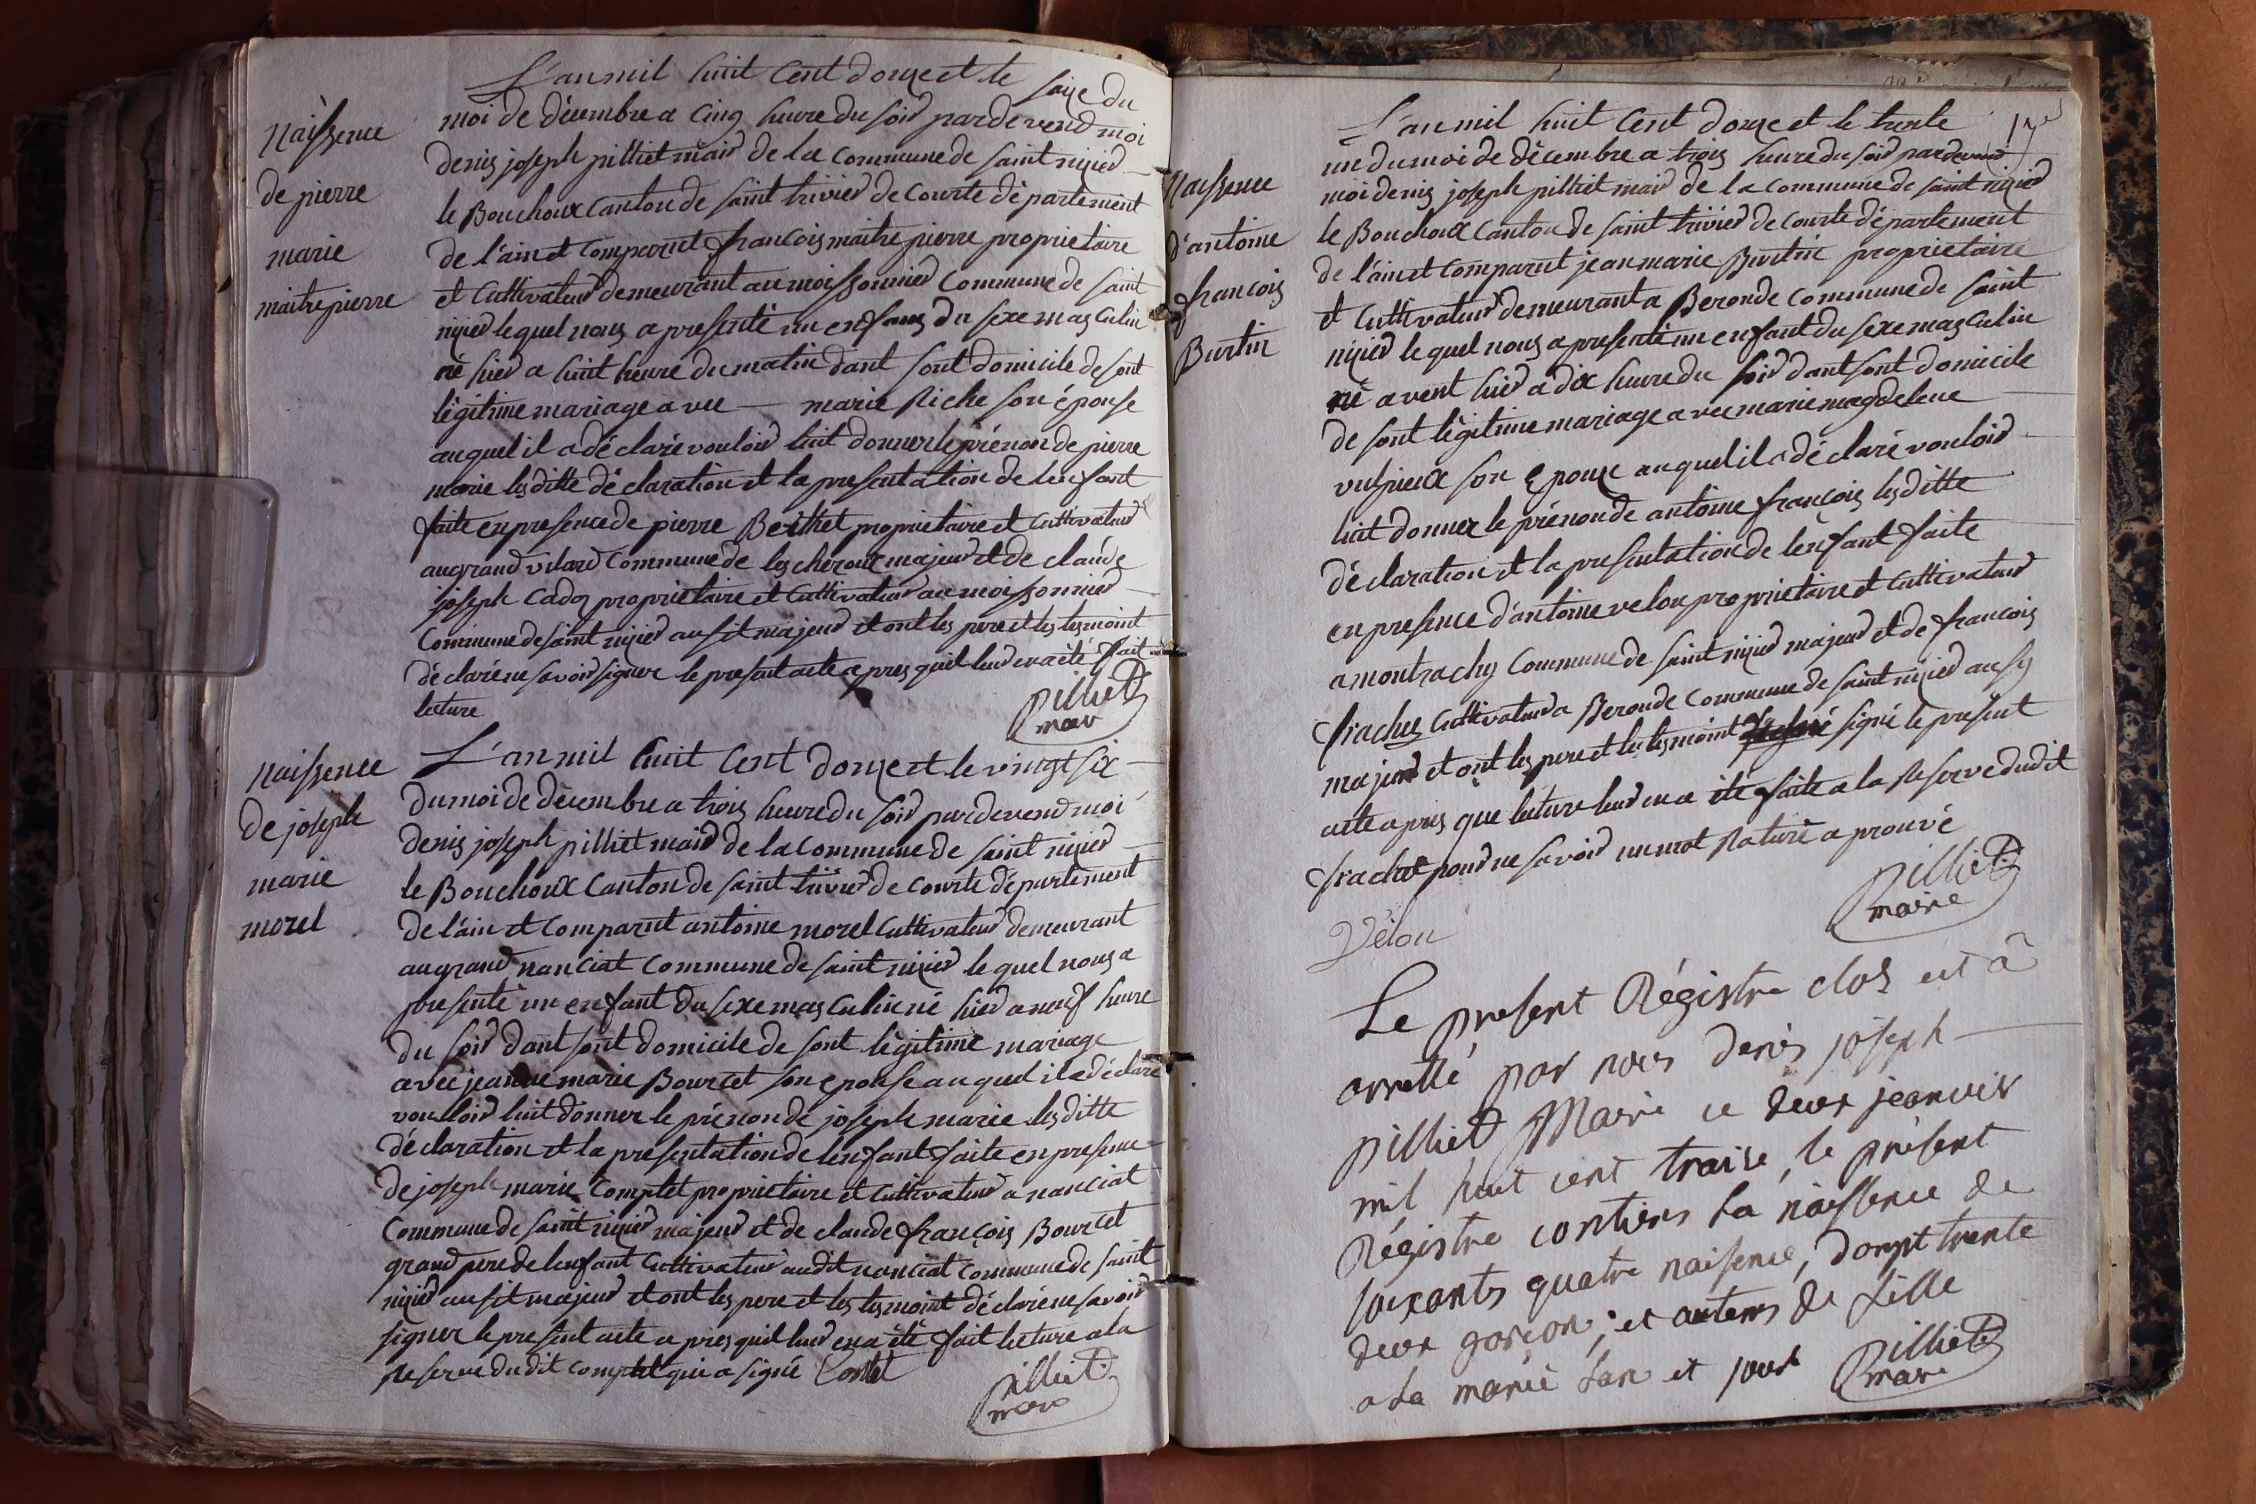 L'an mil huit Cent douze et le saize du
Naissence
de pierre
marie
maitrepierre
moi de décembre a Cinq heure du soir par devend moi
denis joseph pilliet mair de la Commune de saint nizier
le Bouchoux Canton de saint trivier de Courte département
de l'ain et Comparut francois maitrepierre proprietaire
et Cultivateur demeurant au moissonnier Commune de saint
nizier le quel nous a presenté un enfans du sexe masculin
né hier a huit heure du matin dant sont domicile de sont
légitime mariage avec marie Riche son épouse
auquel il a déclaré vouloir luit donner le prénon de pierre
marie lesditte déclaration et la presentation de lenfant
faite en presence de pierre Berthet proprietaire et Cultivateur
au grand vilard Commune de lescheroux majeur et de claude
joseph Cadoz proprietaire et Cultivateur au moissonnier
Commune de saint nizier ausit majeur et ont les pere et les tesmoint
déclaré ne savoir signer le present acte apres quil leur en a été fait
lecture
pilliet
mair
Naissence
de joseph
marie
morel
L'an mil huit Cent douze et le vingt six
du moi de décembre a trois heure du soir par devend moi
denis joseph pilliet mair de la Commune de saint nizier
le Bouchoux Canton de saint trivier de Courte département
de l'ain et Comparut antoine morel Cultivateur demeurant
au grand nanciat Commune de saint nizier le quel nous a
presenté un enfant du sexe masculin né hier a neuf heure
du soir dant sont domicile de sont légitime mariage
avec jeanne marie Bourcet son epouse au quel il a déclaré
vouloir luit donner le prénon de joseph marie lesditte
déclaration et la presentation de lenfant faite en presence
de joseph marie Comptet proprietaire et Cultivateur a nanciat
Commune de saint nizier majeur et de claude françois Bourcet
grand pere de lenfant Cultivateur audit nanciat Commune de saint
nizier ausit majeur et ont les pere et les tesmoint déclaré ne savoir
signer le present acte a pres quil leur en a été fait lecture a la
Reserve dudit comptet qui a signé Contet
pilliet
mair
17e
Naissence
d'antoine
francois
Burtin
L'an mil huit Cent douze et le trente
un du moi de décembre a trois heure du soir par devend
moi denis joseph pilliet mair de la Commune de saint nizier
le Bouchoux Canton de saint trivier de Courte département
de l'ain et Comparut jean marie Burtin proprietaire
et Cultivateur demeurant a Beronde Commune de saint
nizier le quel nous a presenté un enfant du sexe masculin
né avent hier a dix heure du soir dant sont domicile
de sont légitime mariage avec marie magdelene
vulpieux son Epouze auquel il a déclaré vouloir
luit donner le prénon de antoine françois lesditte
déclaration et la presentation de lenfant faite
en presence d'antoine velon proprietaire et Cultivateur
a montrachy Commune de saint nizier majeur et de francois
frachet Cultivateur a Beronde Commune de saint nizier ausy
majeur et ont les pere et les tesmoint signé le present
acte apres que lecture leur en a été faite a la Reserve dudit
frachet pour ne savoir un mot Raturé aprouvé
pilliet
maire
Vélon
Le present Régistre clos et â
arretté par nous denis joseph
pilliet Maire ce deux jeanvier
mil huit cent traise, le présent
Régistre contiens la naissence de
soixante quatre naisence, dompt trente
deux garçon; et autems de fille
a la marie l'an et jour
pilliet
maire